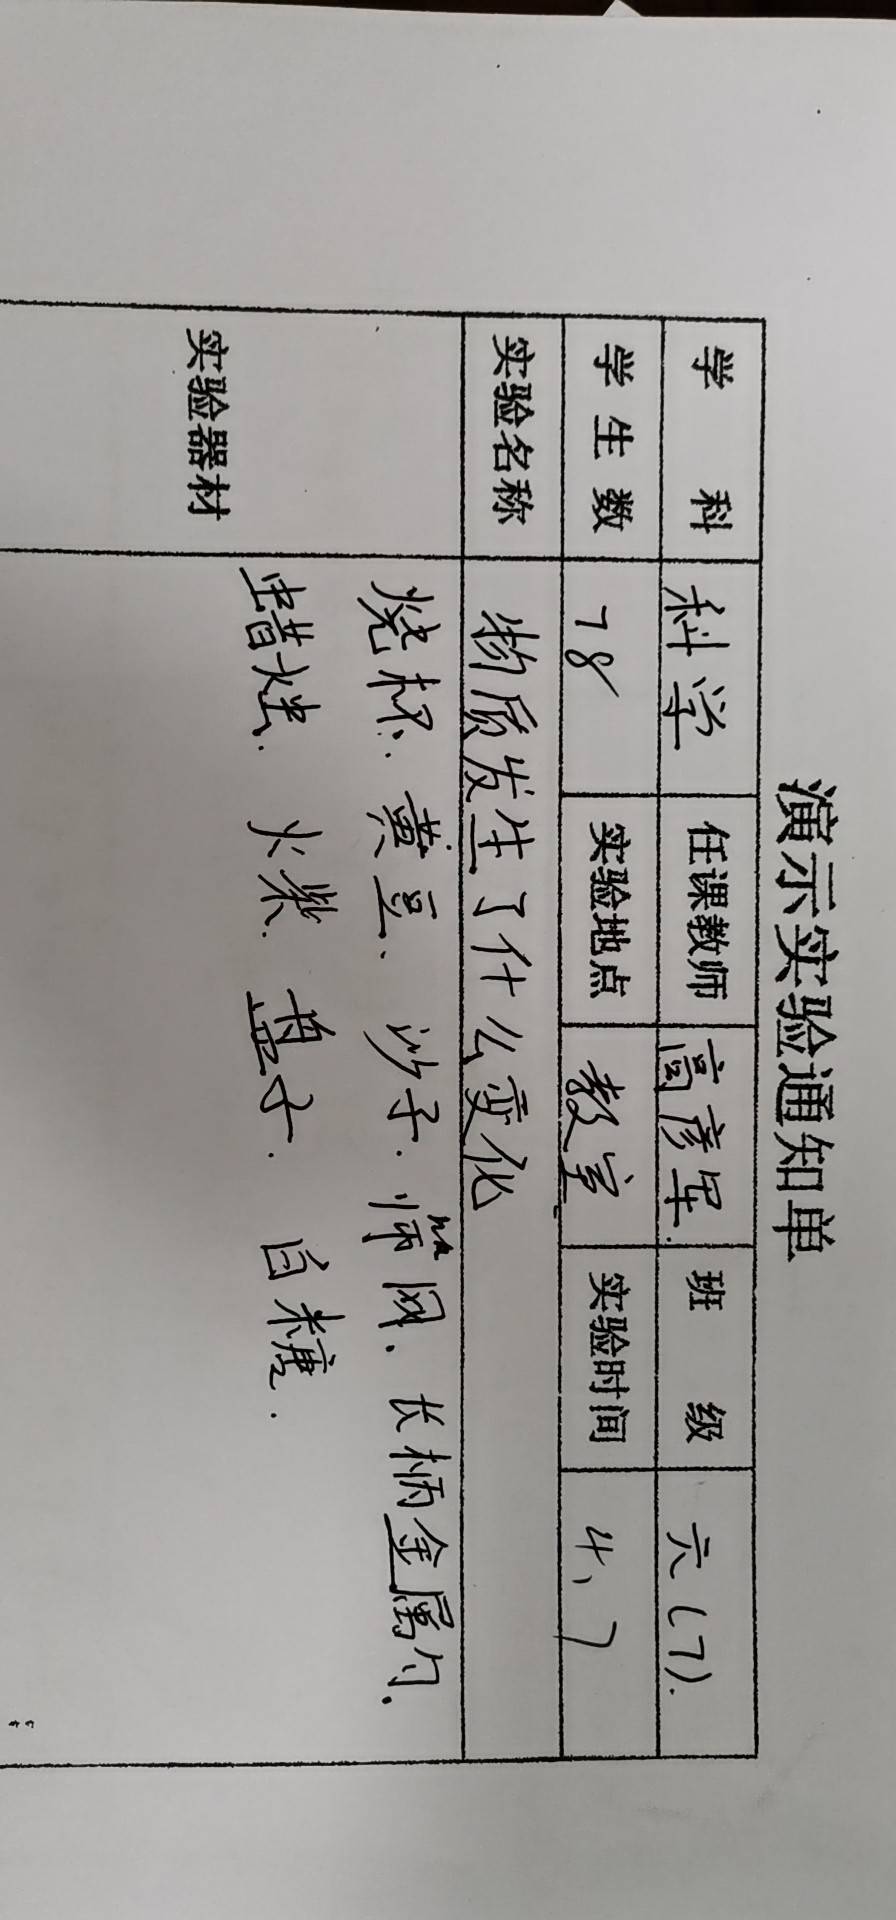 演示实验通知单
学 科 科学 任课教师 高彦军 班 级 六(7).
学生数 78 实验地点 教室 实验时间 4、7
实验名称 物质发生了什么变化
实验器材 烧杯、黄豆、沙子、筛网、长柄金属勺、
蜡烛、火柴、盘子、白糖.